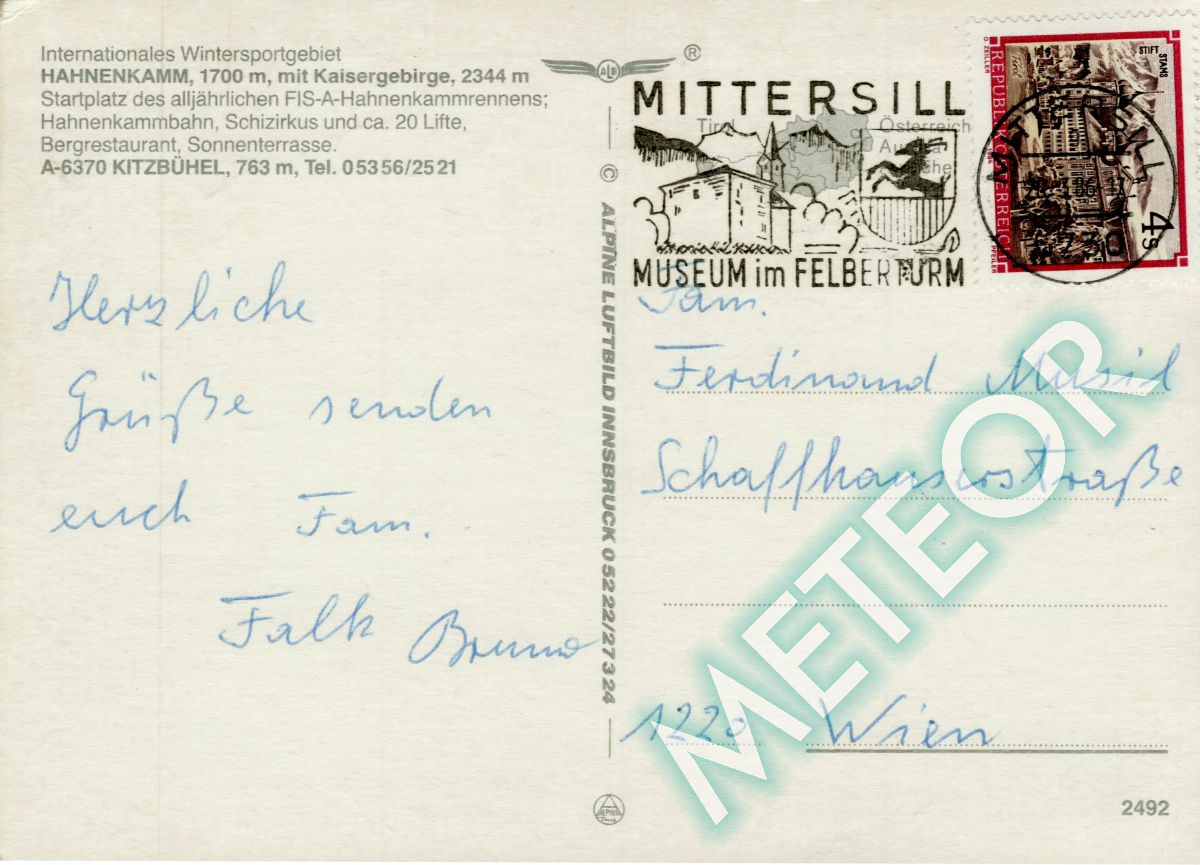 Internationales Wintersportgebiet
HAHNENKAMM, 1700 m, mit Kaisergebirge, 2344 m
Startplatz des alljährlichen FIS-A-Hahnenkammrennens;
Hahnenkammbahn, Schizirkus und ca. 20 Lifte,
Bergrestaurant, Sonnenterrasse.
A-6370 KITZBÜHEL, 763 m, Tel. 0 53 56/25 21
Herzliche
Grüße senden
euch Fam.
Falk Bruno
ALB ®
© ALPINE LUFTBILD INNSBRUCK 0 52 22/27 3 24
ALPINA
MITTERSILL
Tirol
Österreich
MUSEUM im FELBERTURM
STIFT STAMS
REPUBLIK ÖSTERREICH
O. ZEILLER
PFEILER
4 S
5730
Fam.
Ferdinand Musil
Schaffhauserstraße
1220 Wien
METEOR
2492